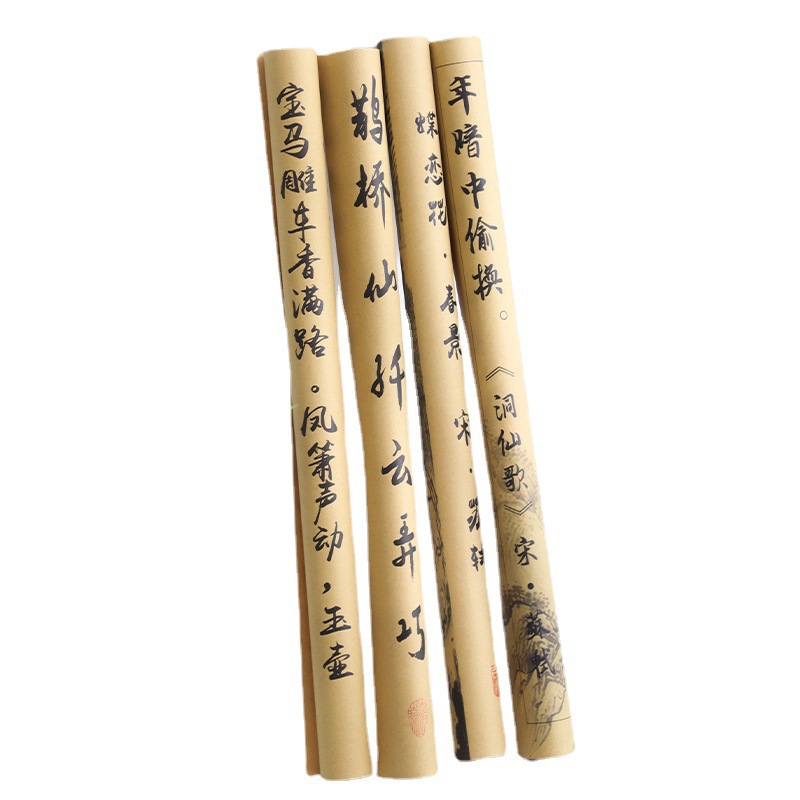 宝马雕车香满路。凤箫声动，玉壶
鹊桥仙 纤云弄巧
蝶恋花·春景 宋·苏轼
年暗中偷换。《洞仙歌》宋·蘇軾